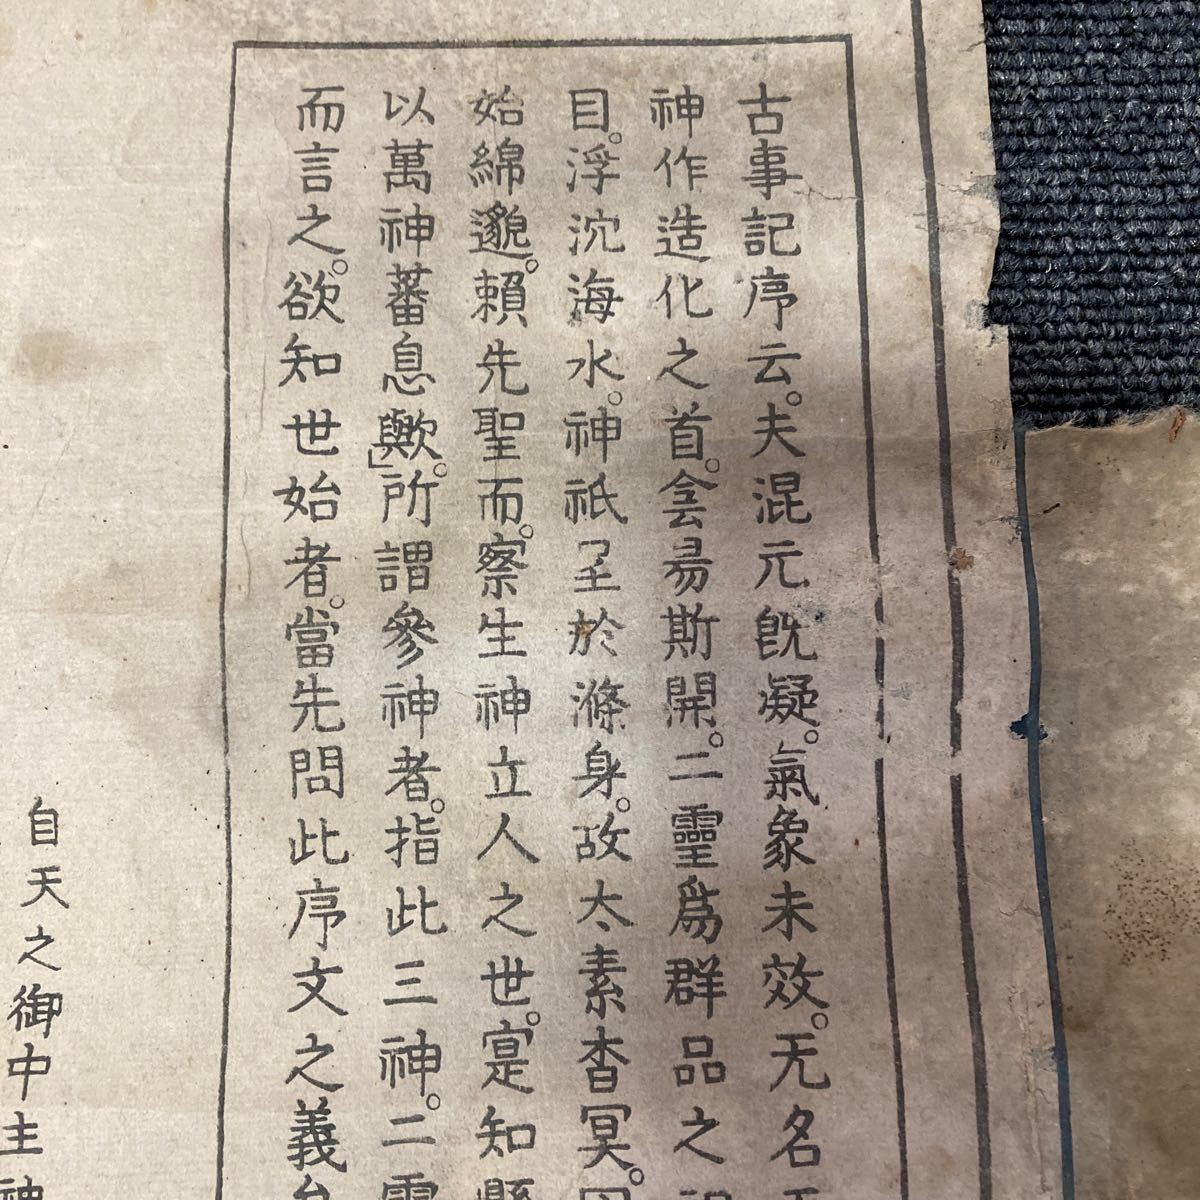 古事記序云。夫混元既凝。氣象未效。无名
神作造化之首。会昜斯開。二靈爲群品之
目。浮沈海水。神祇呈於滌身。故太素杳冥。因
始綿邈。賴先聖而。察生神立人之世。寔知
以萬神蕃息歟」。所謂參神者。指此三神。二靈
而言之。欲知世始者。當先問此序文之義
自天之御中主神